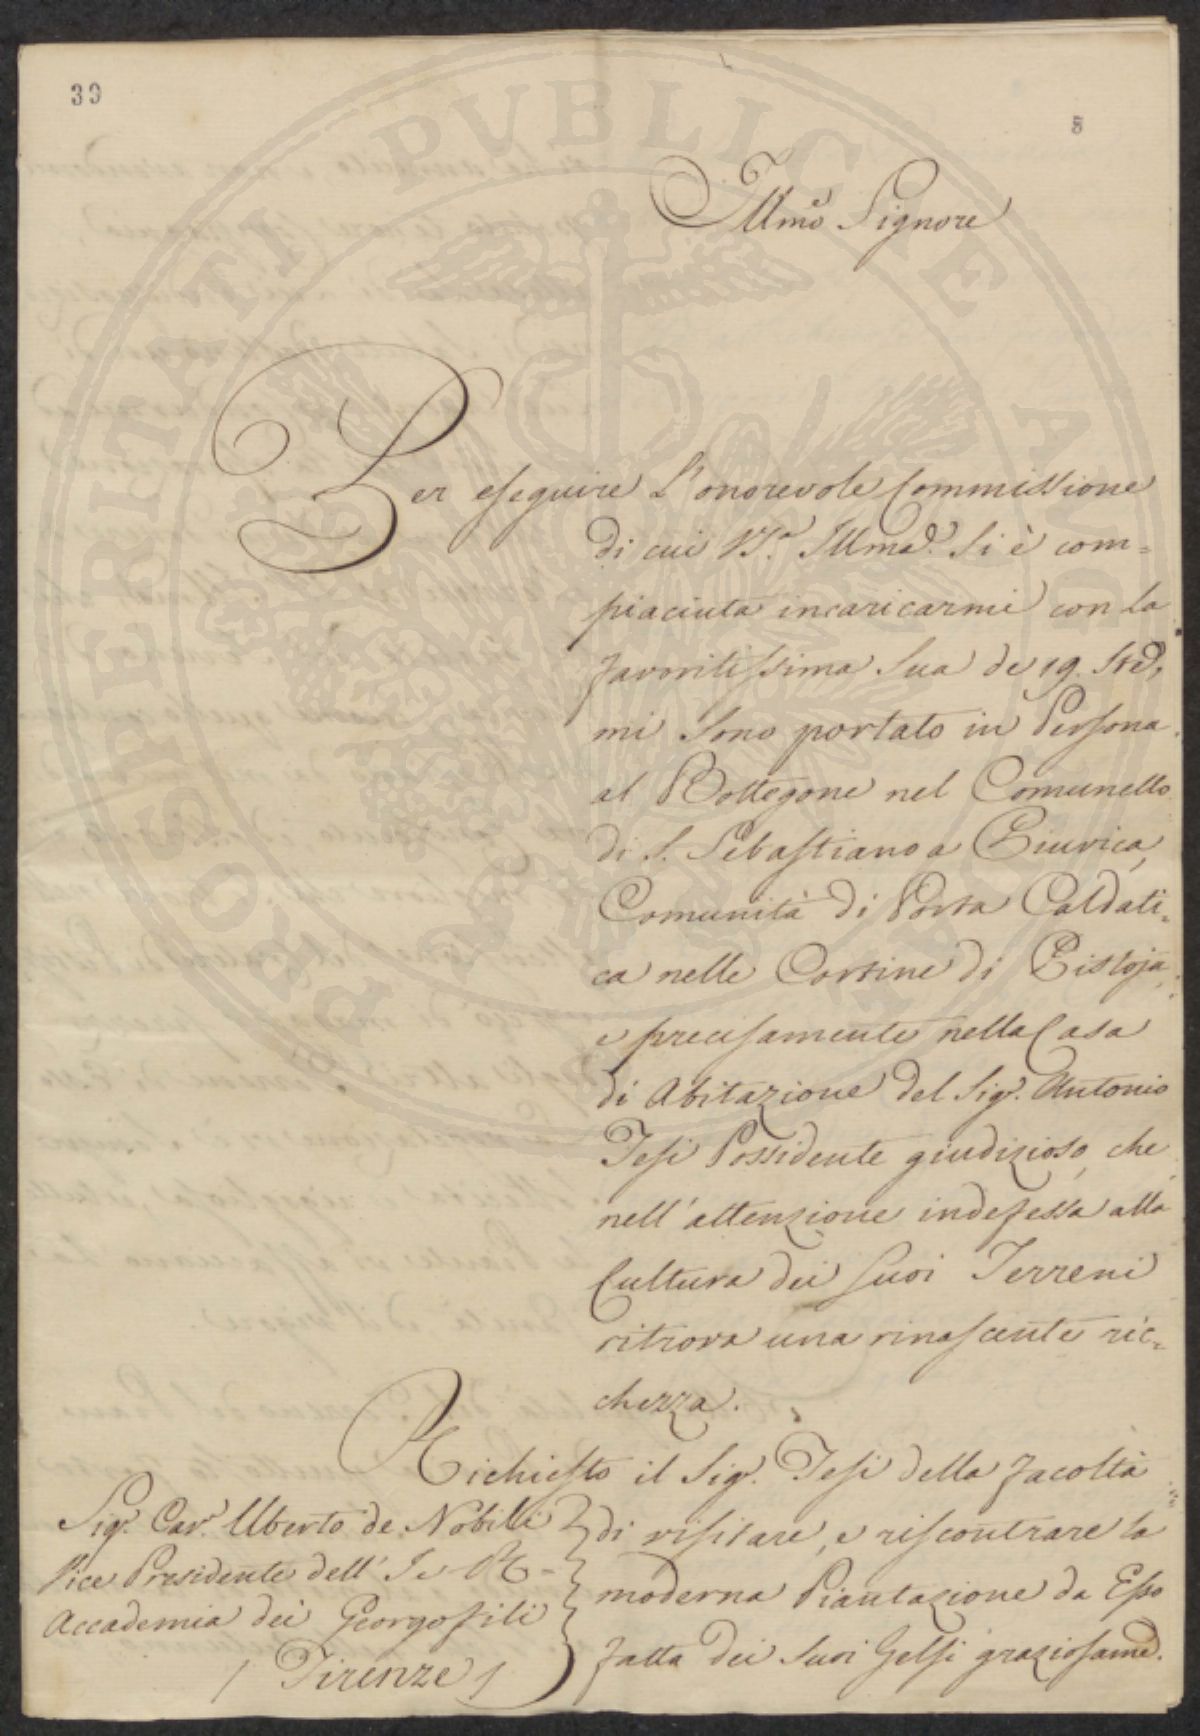 39
8
Illmo Signore
Per eseguire L'onorevole Commissione
di cui VS.a Illma. Si è com=
piaciuta incaricarmi con la
favoritissima Sua de 19. Ste,
mi Sono portato in Persona
al Bottegone nel Comunello
di S. Sebastiano a Piuvica,
Comunità di Porta Caldati=
ca nelle Cortine di Pistoja,
e precisamente nella Casa
di Abitazione del Sigr. Antonio
Tesi Possidente giudizioso, che
nell'attenzione indefessa alla
Cultura dei Suoi Terreni
ritrova una rinascente ric=
chezza.
Richiesto il Sigr. Tesi della facoltà
di visitare, e riscontrare la
moderna Piantazione da Esso
fatta dei Suoi Gelsi graziosame.
Sigr. Cavr. Uberto de Nobili
Vice Presidente dell' I. e R.
Accademia dei Georgofili
/ Firenze /
PROSPERITATI PVBLICAE AVGENDAE